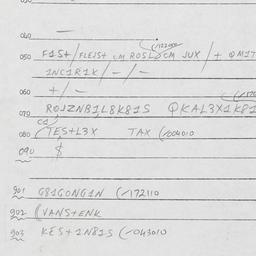 040 —
(/172
050 F1S+/FLEIST UM ROSL CM JUX/+ QM1T
1NC1R1X/-/-
060 +/-
070 ROJZNB1L8K81S QKAL3X1K81
C1)
080 (TES+L3X TAX (/004010
090 $
901 G81GONG1N (/172110
902 (VANS+ENK
903 KES+1N81S (/043010